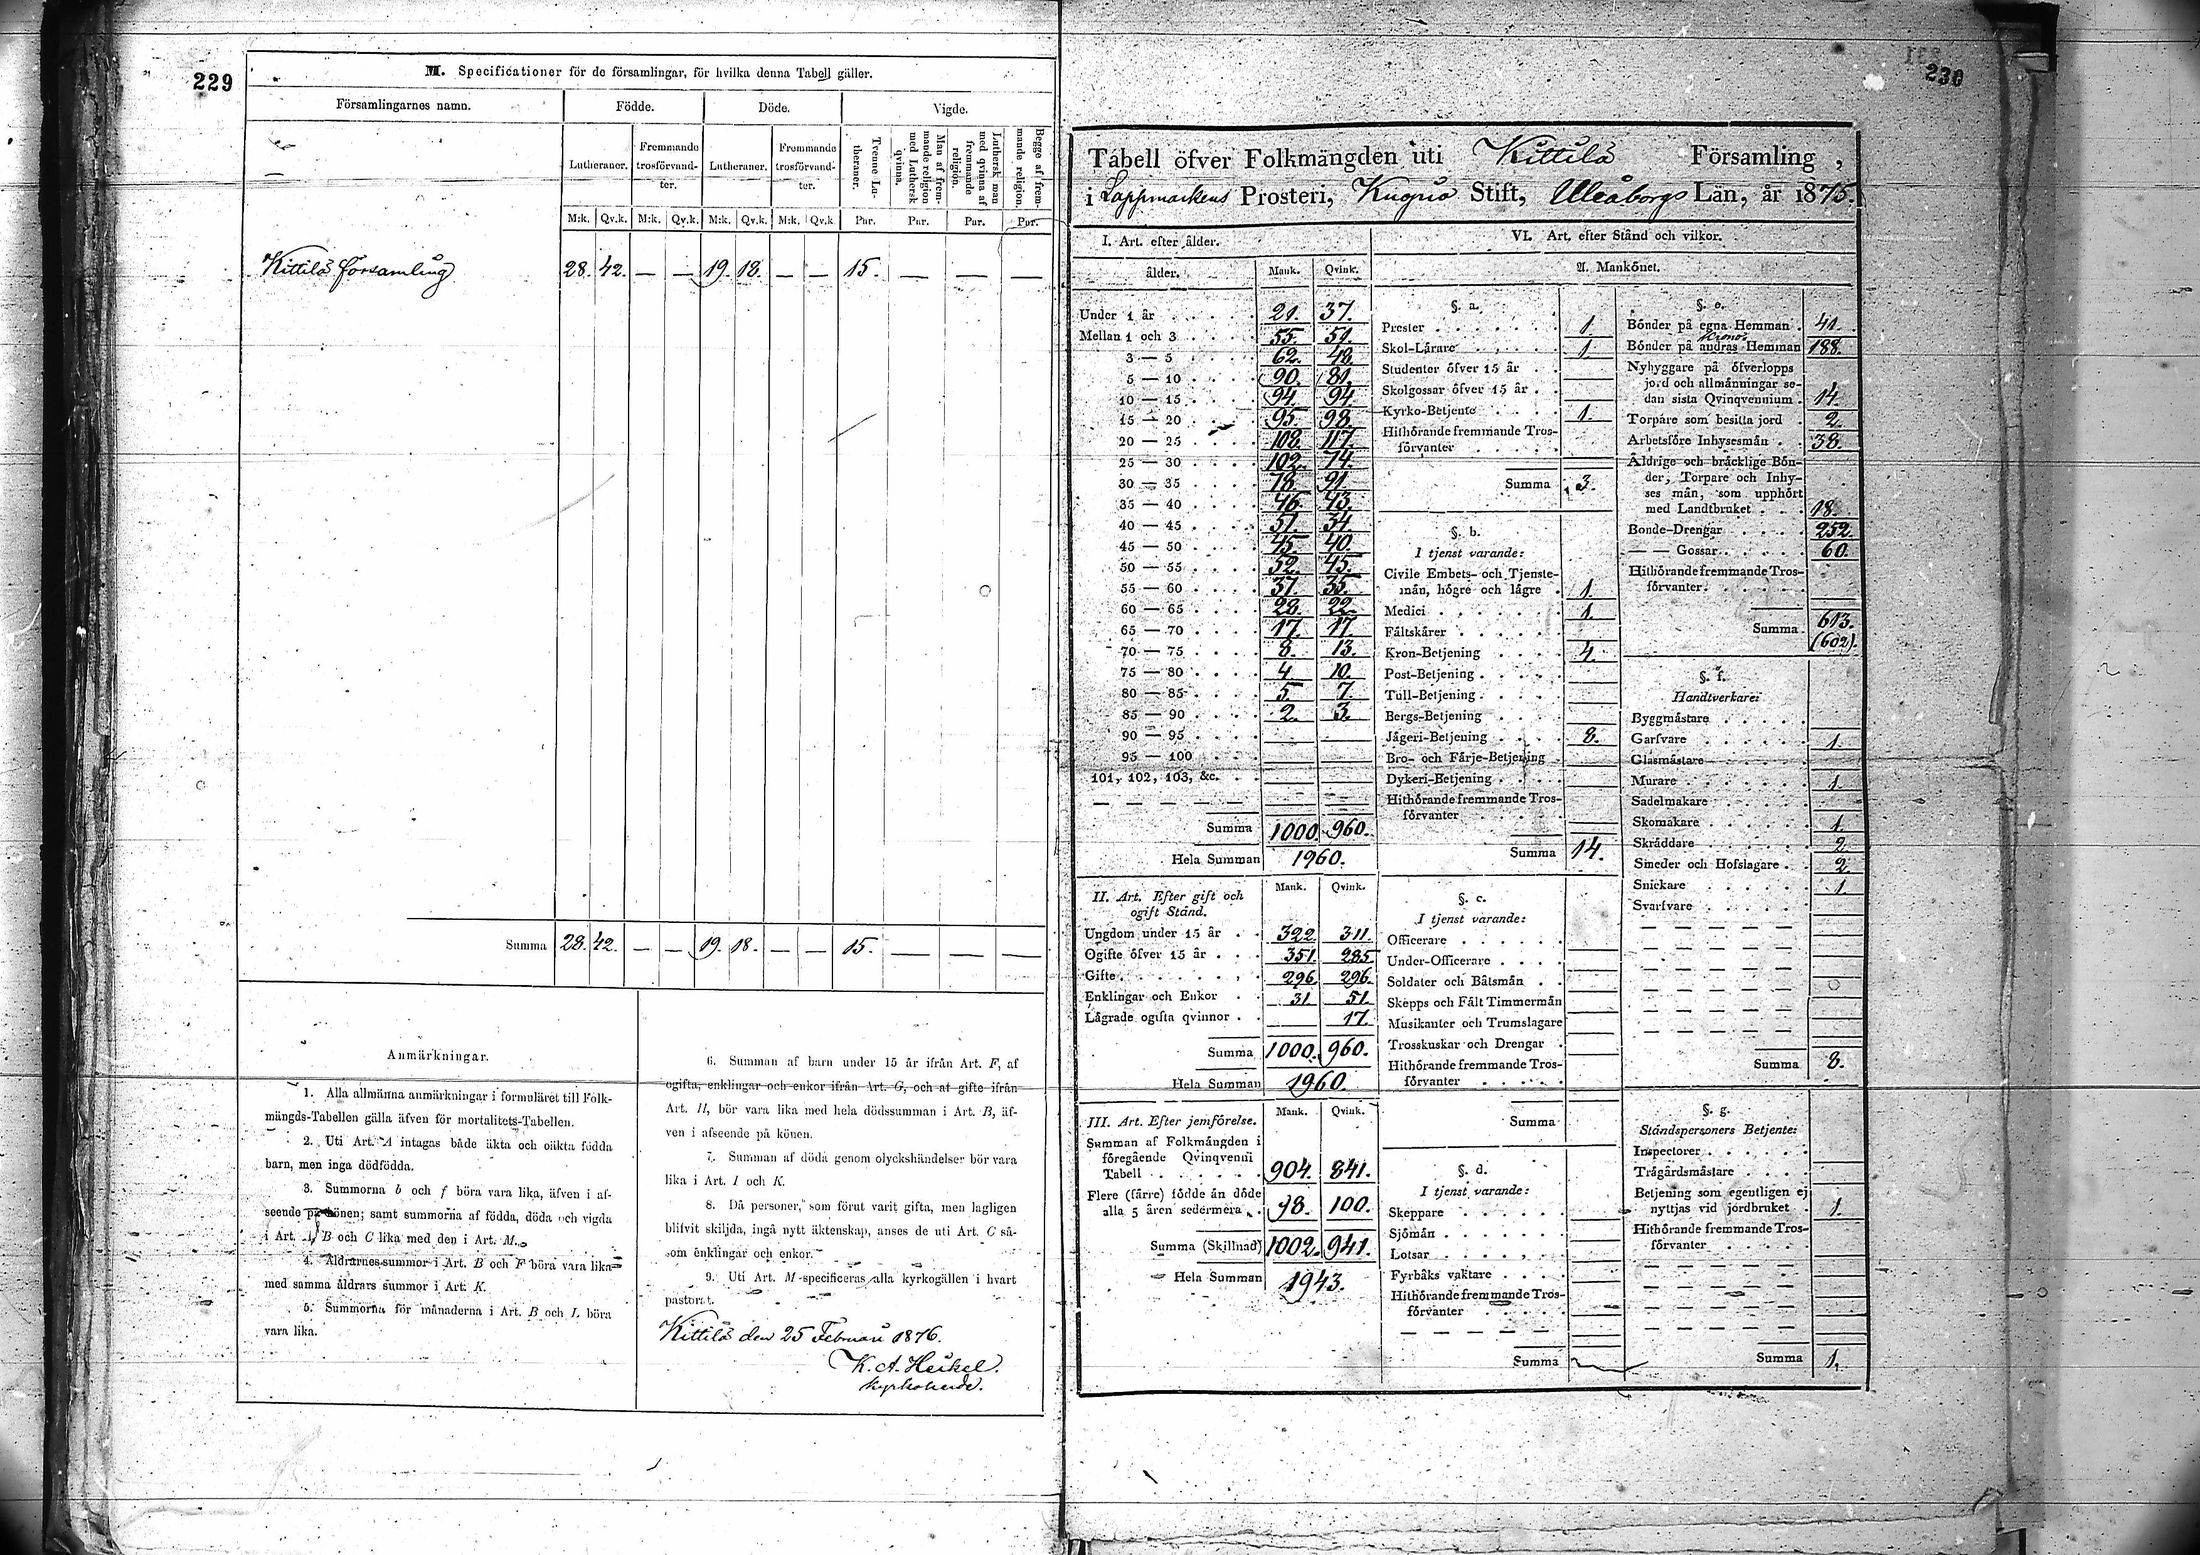 229
M. Specificationer för de församlingar, för hvilka denna Tabell gäller.
Församlingarnes namn. Födde. Döde. Vigde.
Lutheraner. Fremmande trosförvandter. Lutheraner. Fremmande trosförvandter. Tvenne Lutheraner. Man af fremmande religion med Luthersk qvinna. Luthersk man med qvinna af fremmande religion. Begge af fremmande religion.
M:k. Qv.k. M:k. Qv.k. M:k. Qv.k. M:k. Qv.k. Par. Par. Par. Par.
Kittilä församling 28. 42. — — 19. 18. — — 15. — — —
Summa 28. 42. — — 19. 18. — — 15. — — —
Anmärkningar.
1. Alla allmänna anmärkningar i formuläret till Folk-
mängds-Tabellen gälla äfven för mortalitets-Tabellen.
2. Uti Art. A intagas både äkta och oäkta födda
barn, men inga dödfödda.
3. Summorna b och f böra vara lika, äfven i af-
seende på könen; samt summorna af födda, döda och vigda
i Art. A, B och C lika med den i Art. M.
4. Åldrarnes summor i Art. B och F böra vara lika
med samma åldrars summor i Art. K.
5. Summorna för månaderna i Art. B och L böra
vara lika.
6. Summan af barn under 15 år ifrån Art. F, af
ogifta, enklingar och enkor ifrån Art. G, och af gifte ifrån
Art. H, bör vara lika med hela dödssumman i Art. B, äf-
ven i afseende på könen.
7. Summan af döda genom olyckshändelser bör vara
lika i Art. I och K.
8. Då personer, som förut varit gifta, men lagligen
blifvit skiljda, ingå nytt äktenskap, anses de uti Art. C så-
som enklingar och enkor.
9. Uti Art. M specificeras alla kyrkogällen i hvart
pastorat.
Kittilä den 25 Februari 1876.
K. A. Heikel.
Kyrkoherde.
230
Tabell öfver Folkmängden uti Kittilä Församling,
i Lappmarkens Prosteri, Kuopio Stift, Uleåborgs Län, år 1875.
I. Art. efter ålder.
ålder. Mank. Qvink.
Under 1 år 21. 37.
Mellan 1 och 3 55. 51.
3 — 5 62. 48.
5 — 10 90. 81.
10 — 15 94. 94.
15 — 20 95. 98.
20 — 25 108. 117.
25 — 30 102. 74.
30 — 35 78. 91.
35 — 40 46. 43.
40 — 45 51. 34.
45 — 50 45. 40.
50 — 55 52. 45.
55 — 60 37. 35.
60 — 65 28. 22.
65 — 70 17. 17.
70 — 75 8. 13.
75 — 80 4. 10.
80 — 85 5. 7.
85 — 90 2. 3.
90 — 95
95 — 100
101, 102, 103, &c.
Summa 1000. 960.
Hela Summan 1960.
II. Art. Efter gift och
ogift Stånd. Mank. Qvink.
Ungdom under 15 år 322 311.
Ogifte öfver 15 år 351. 285
Gifte 296 296.
Enklingar och Enkor 31 51.
Lägrade ogifta qvinnor 17.
Summa 1000. 960.
Hela Summan 1960.
III. Art. Efter jemförelse. Mank. Qvink.
Summan af Folkmängden i
föregående Qvinqvennii
Tabell 904. 841.
Flere (färre) födde än döde
alla 5 åren sedermera 98. 100.
Summa (Skillnad) 1002. 941.
Hela Summan 1943.
VI. Art. efter Stånd och vilkor.
A. Mankönet.
§. a.
Prester 1.
Skol-Lärare 1.
Studenter öfver 15 år
Skolgossar öfver 15 år
Kyrko-Betjente 1.
Hithörande fremmande Tros-
förvanter
Summa 3.
§. b.
I tjenst varande:
Civile Embets- och Tjenste-
män, högre och lägre 1.
Medici 1.
Fältskärer
Kron-Betjening 4.
Post-Betjening
Tull-Betjening
Bergs-Betjening
Jägeri-Betjening 8.
Bro- och Färje-Betjening
Dykeri-Betjening
Hithörande fremmande Tros-
förvanter
Summa 14.
§. c.
I tjenst varande:
Officerare
Under-Officerare
Soldater och Båtsmän
Skepps och Fält Timmermän
Musikanter och Trumslagare
Trosskuskar och Drengar
Hithörande fremmande Tros-
förvanter
Summa
§. d.
I tjenst varande:
Skeppare
Sjömän
Lotsar
Fyrbåks vaktare
Hithörande fremmande Tros-
förvanter
Summa
§. e.
Bönder på egna Hemman 41.
Krono
Bönder på andras Hemman 188.
Nybyggare på öfverlopps
jord och allmänningar se-
dan sista Qvinqvennium 14.
Torpare som besitta jord 2.
Arbetsföre Inhysesmän 38.
Åldrige och bräcklige Bön-
der, Torpare och Inhy-
ses män, som upphört
med Landtbruket 18.
Bonde-Drengar 252.
— — Gossar 60.
Hithörande fremmande Tros-
förvanter
Summa 613.
(602).
§. f.
Handtverkare:
Byggmästare
Garfvare 1.
Glasmästare
Murare 1.
Sadelmakare
Skomakare 1.
Skräddare 2.
Smeder och Hofslagare 2.
Snickare 1.
Svarfvare
Summa 8.
§. g.
Ståndspersoners Betjente:
Inspectorer
Trägårdsmästare
Betjening som egentligen ej
nyttjas vid jordbruket 1.
Hithörande fremmande Tros-
förvanter
Summa 1.